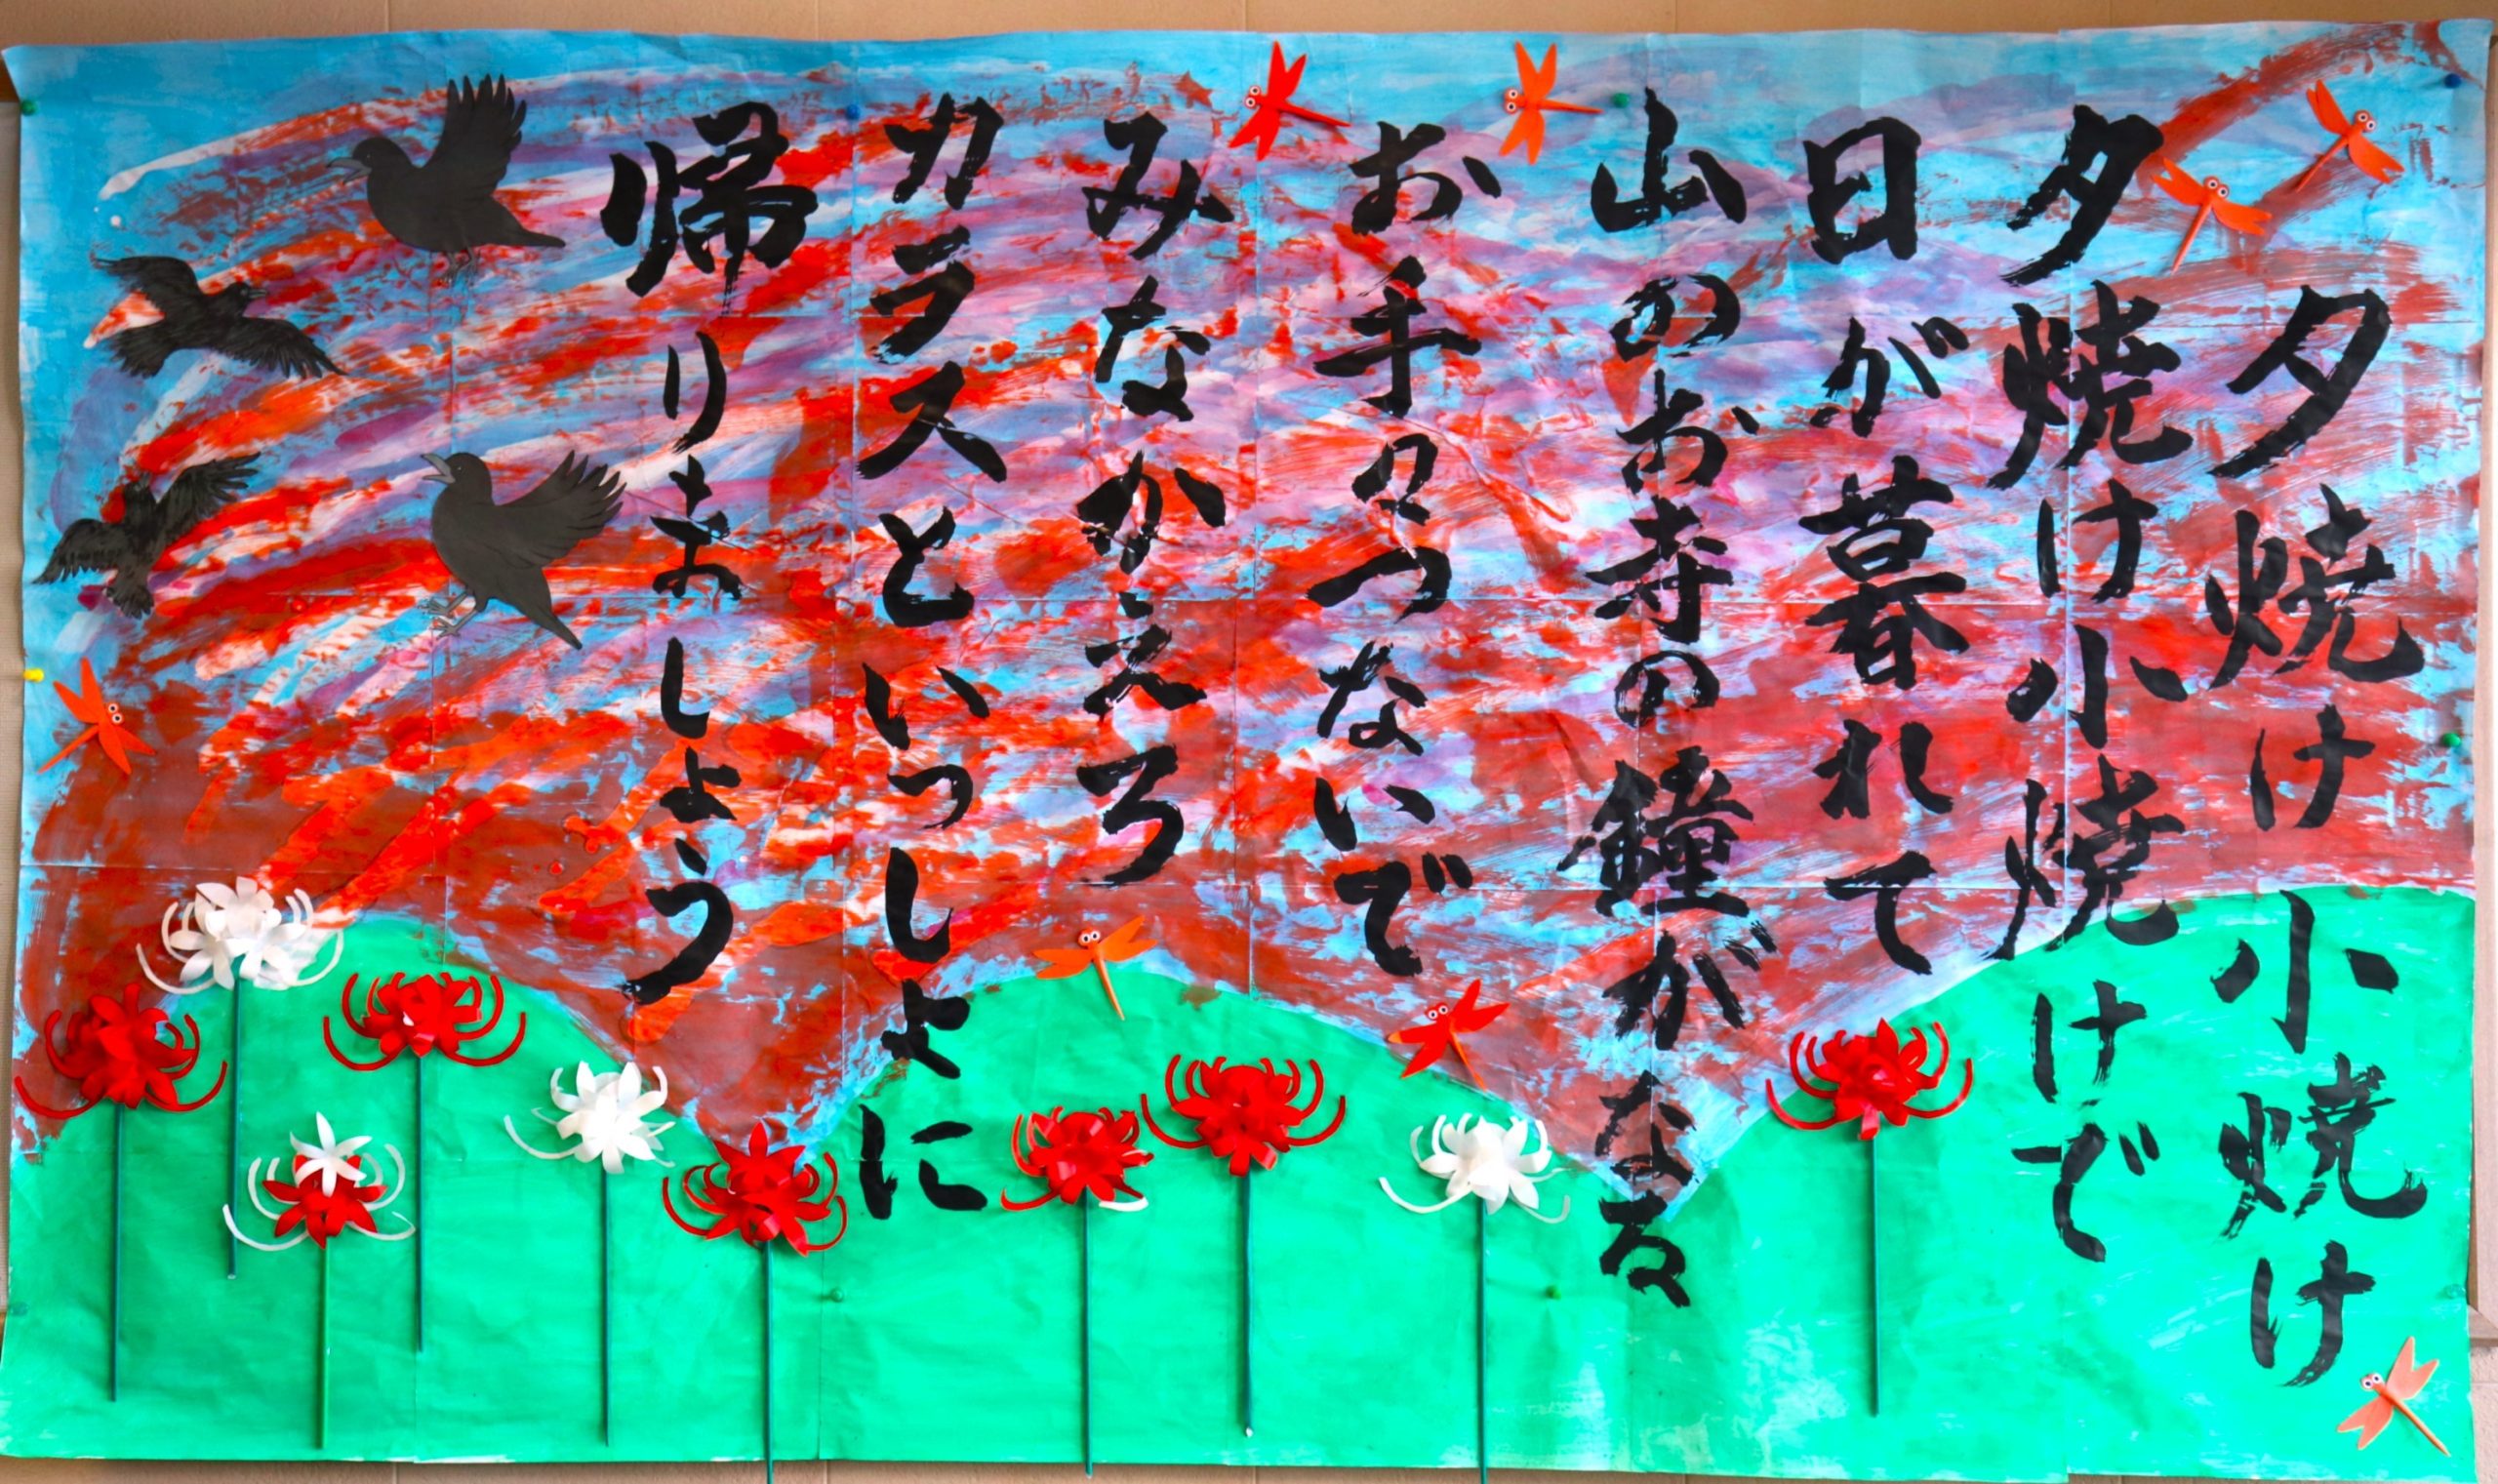 夕焼け小焼け
夕焼け小焼けで
日が暮れて
山のお寺の鐘がなる
お手々つないで
みなかえろ
カラスといっしょに
帰りましょう